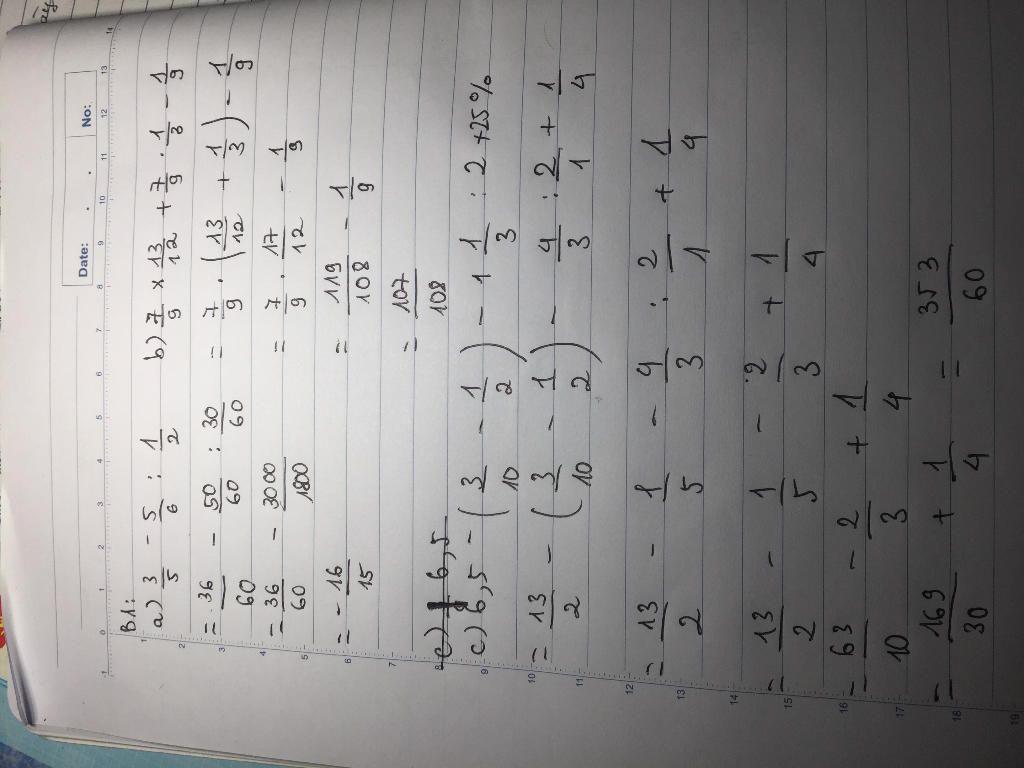 Date: . . No:
B.1:
a) 3/5 - 5/6 : 1/2
= 36/60 - 50/60 : 30/60
= 36/60 - 3000/1800
= - 16/15
b) 7/9 x 13/12 + 7/9 . 1/3 - 1/9
= 7/9 . (13/12 + 1/3) - 1/9
= 7/9 . 17/12 - 1/9
= 119/108 - 1/9
= 107/108
c) 6,5
c) 6,5 - (3/10 - 1/2) - 1 1/3 : 2 + 25%
= 13/2 - (3/10 - 1/2) - 4/3 : 2/1 + 1/4
= 13/2 - 1/5 - 4/3 : 2/1 + 1/4
= 13/2 - 1/5 - 2/3 + 1/4
= 63/10 - 2/3 + 1/4
= 169/30 + 1/4 = 353/60